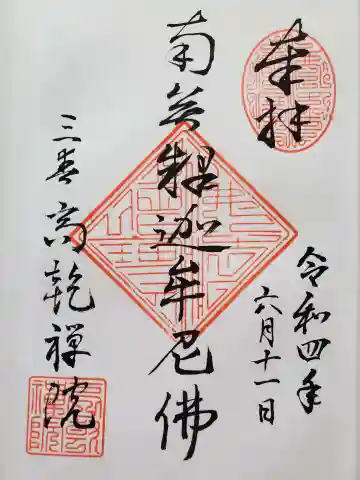 奉拝
令和四年
六月十一日
南無釋迦牟尼佛
三春 高乾禅院